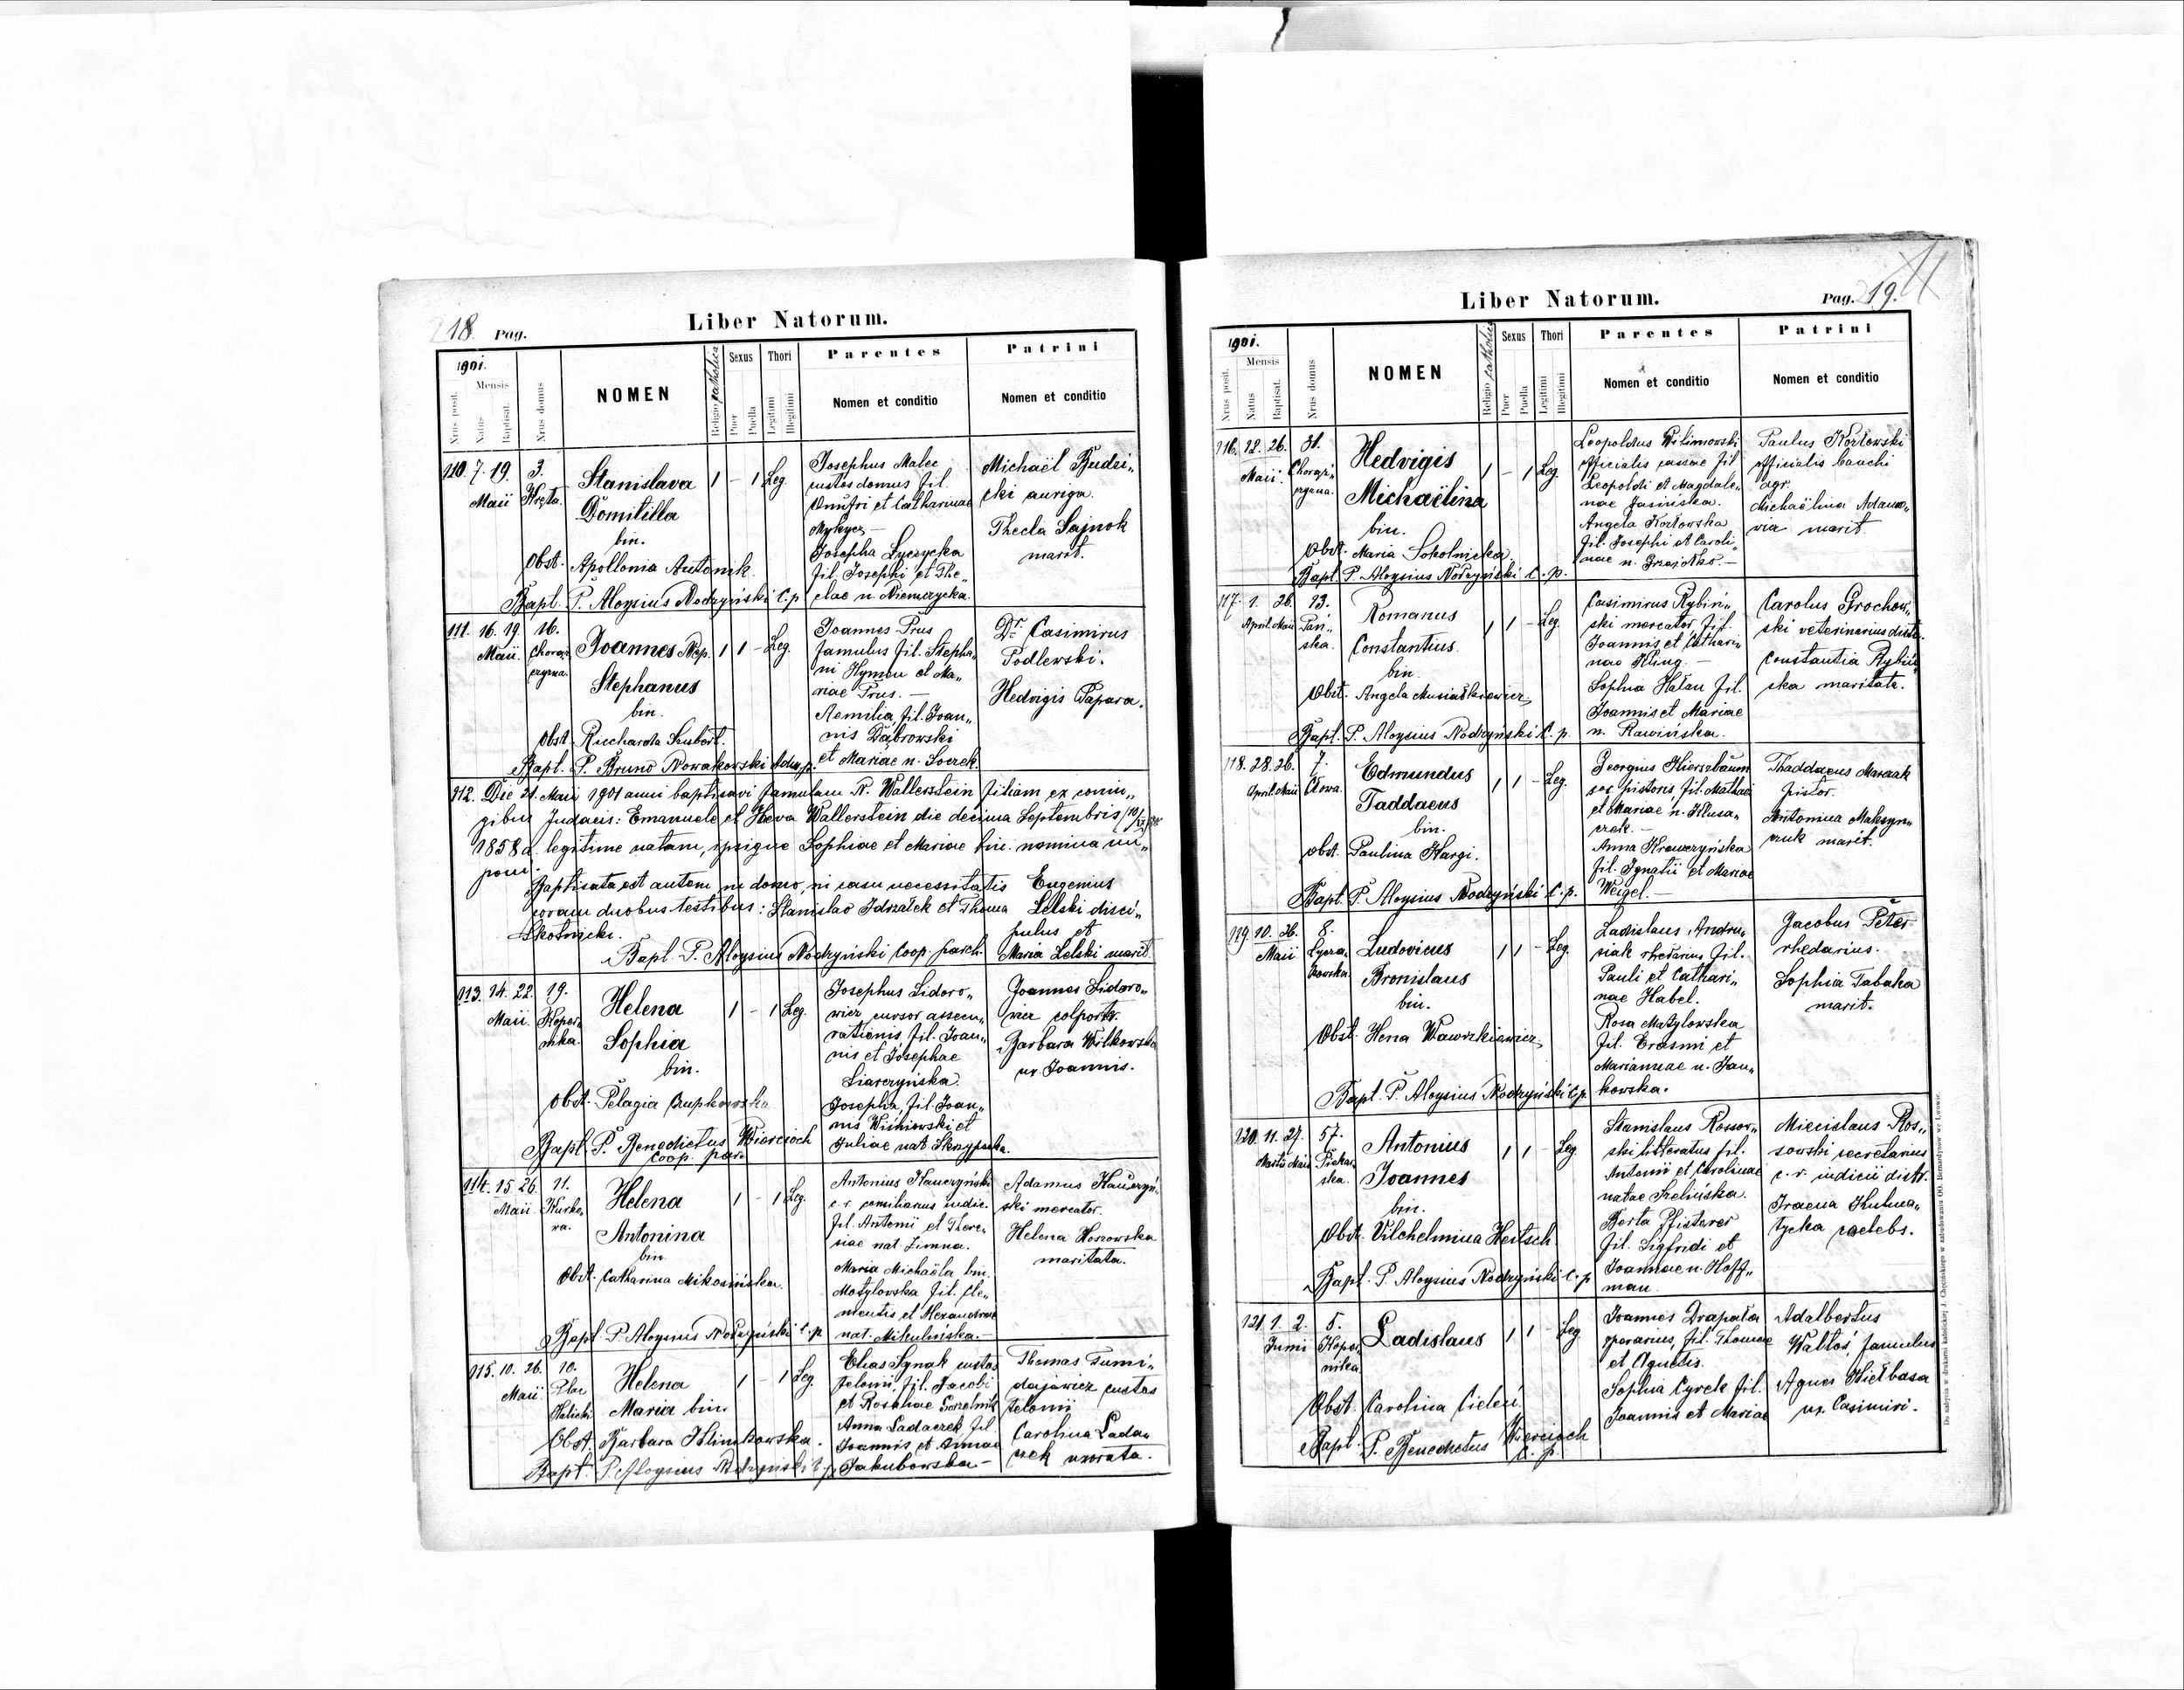 18 Pag.
Liber Natorum.
1901.
Nrus posit.
Mensis
Natus
Baptisat.
Nrus domus
NOMEN
Religio catholica
Sexus
Puer
Puella
Thori
Legitimi
Illegitimi
Parentes
Nomen et conditio
Patrini
Nomen et conditio
110. 7. 19. 3.
Maii Kręta.
Stanislava 1 - 1 Leg.
Domitilla
bin.
Obst. Apollonia Antonik.
Bapl. P. Aloysius Nodzyński C. p.
Josephus Malec
custos domus fil.
Onufri et Catharinae
Mykycz —
Josepha Łyczycka
fil. Josephi et The„
clae n. Niemczycka.
Michaël Budzi„
cki auriga.
Thecla Sajnok
marit.
111. 16. 19. 16.
Maii.
Joannes Nep. 1 1 - Leg.
Stephanus
bin.
Obst. Rucharda Szubert.
Bapl. P. Bruno Nowakowski
Joannes Prus
famulus fil. Stepha„
ni Hymen et Ma„
riae Prus. —
Aemilia, fil. Joan„
nis Dąbrowski
et Mariae n. Sverek.
Dr. Casimirus
Podlewski.
Hedvigis Papara.
112. Die 21. Maii 1901 anni baptisavi famulam N. Wallerstein filiam ex coniu„
gibus Judaeis: Emanuele et Heva Wallerstein die decima Septembris
1858 a. legitime natam, ipsique Sophiae et Mariae bin. nomina im„
posui.
Baptisata est autem in domo, in casu necessitatis
coram duobus testibus: Stanislao Idziałek et Thoma
Skotnicki.
Bapl. P. Aloysius Nodzyński Coop. paroch.
Eugenius
Lelski disci„
pulus et
Maria Lelski marit.
113. 14. 22. 19.
Maii. Koper„
nika.
Helena 1 - 1 Leg.
Sophia
bin.
Obst. Pelagia Krupkowska
Bapl. P. Benedictus Wiercioch
Coop. par.
Josephus Sidoro„
wicz cursor assecu„
rationis, fil. Joan„
nis et Josephae
Siarczyńska.
Josepha, fil. Joan„
nis Wiśniowski et
Juliae nat.
Joannes Sidoro„
wicz colport.
Barbara Wilkowska
ux Joannis.
114. 15. 26. 11.
Maii. Kurko„
wa.
Helena 1 - 1 Leg.
Antonina
bin
Obst. Catharina Mikosińska.
Bapl. P. Aloysius Nodzyński C. p.
Antonius Hauczyński
c. r. consiliarius iudic.
fil. Antonii et There„
siae nat. Zimna.
Maria Michaëla bin.
Motylowska fil. Cle„
mentis et Alexandrae
nat. Mikulińska. —
Adamus Hauczyń„
ski mercator.
Helena Hoszowska
maritata.
115. 10. 26. 10.
Maii. Plac
Halicki
Helena 1 - 1 Leg.
Maria bin.
Obst. Barbara Klimkowska.
Bapt. P. Aloysius Nodzyński C. p.
Elias Synak custos
telonii, fil. Jacobi
et Rosaliae
Anna Ladaczek fil.
Joannis et Annae
Jakubowska —
Thomas Tumi„
dajewicz custos
telonii
Carolina Lada„
czek uxorata.
Liber Natorum.
Pag. 19.
1901.
Nrus posit.
Mensis
Natus
Baptisat.
Nrus domus
NOMEN
Religio catholica
Sexus
Puer
Puella
Thori
Legitimi
Illegitimi
Parentes
Nomen et conditio
Patrini
Nomen et conditio
116. 12. 26. 31.
Maii.
Hedvigis 1 - 1 Leg.
Michaëlina
bin.
Obst. Maria Sokolnicka.
Bapl. P. Aloysius Nodzyński C. p.
Leopoldus Wilimowski
officialis cassae fil
Leopoldi et Magdale„
nae Jasińska.
Angela Kozłowska
fil. Josephi et Caroli„
nae n.
Paulus Kozłowski
officialis banchi
agr.
Michaëlina Adamo„
wicz marit.
117. 1. 26. 13.
April. Maii Pań„
ska.
Romanus 1 1 - Leg.
Constantius.
bin.
Obst. Angela Musiałkiewicz
Bapl. P. Aloysius Nodzyński C. p.
Casimirus Rybiń„
ski mercator, fil.
Joannis et Cathari„
nae Kling. —
Sophia Hałan fil.
Joannis et Mariae
n. Rawińska.
Carolus Grochow„
ski veterinarius distr.
Constantia Rybiń„
ska maritata.
118. 28. 26. 7.
April. Maii Cłowa.
Edmundus 1 1 - Leg.
Taddaeus
bin.
Obst. Paulina Hargi.
Bapl. P. Aloysius Nodzyński C. p.
Georgius Hierszbäum
soc. pistoris fil. Mathaei
et Mariae n. Klusa„
czek. —
Anna Krawczyńska
fil. Ignatii et Mariae
Weigel. —
Thaddaeus Marcak
pistor.
Antonina Maksym„
czuk marit.
119. 10. 26. 8.
Maii Łycza„
kowska.
Ludovicus 1 1 - Leg.
Bronislaus
bin.
Obst. Hena Wawrzkiewicz
Bapl. P. Aloysius Nodzyński C. p.
Ladislaus Andru„
siak rhedarius, fil.
Pauli et Cathari„
nae Habel.
Rosa Matylowska
fil. Erasmi et
Mariannae n. Jan„
kowska.
Jacobus Peter
rhedarius.
Sophia Tabaka
marit.
120. 11. 27. 57.
Martii Maii Piekar„
ska.
Antonius 1 1 - Leg.
Joannes
bin.
Obst. Vilchelmina Hertsch.
Bapl. P. Aloysius Nodzyński C. p.
Stanislaus Rossow„
ski litteratus fil.
Antonii et Carolinae
natae Szelińska.
Berta Pfisterer
fil. Sigfridi et
Joannae n. Hoff„
man.
Miecislaus Ros„
sowski secretarius
c. r. iudicii distr.
Iraena Kulma„
tycka caelebs.
121. 1. 2. 5.
Junii Koper„
nika
Ladislaus 1 1 - Leg.
Obst. Carolina Cieleń.
Bapl. P. Benedictus Wiercioch
C. p.
Joannes Drapała
operarius, fil. Thomae
et Agnetis.
Sophia Cyrek fil.
Joannis et Mariae
Adalbertus
Waltoś, famulus
Agnes Kiełbasa
ux. Casimiri.
Do nabycia w drukarni katolickiej J. Chęcińskiego w zabudowaniu OO. Bernardynów we Lwowie.